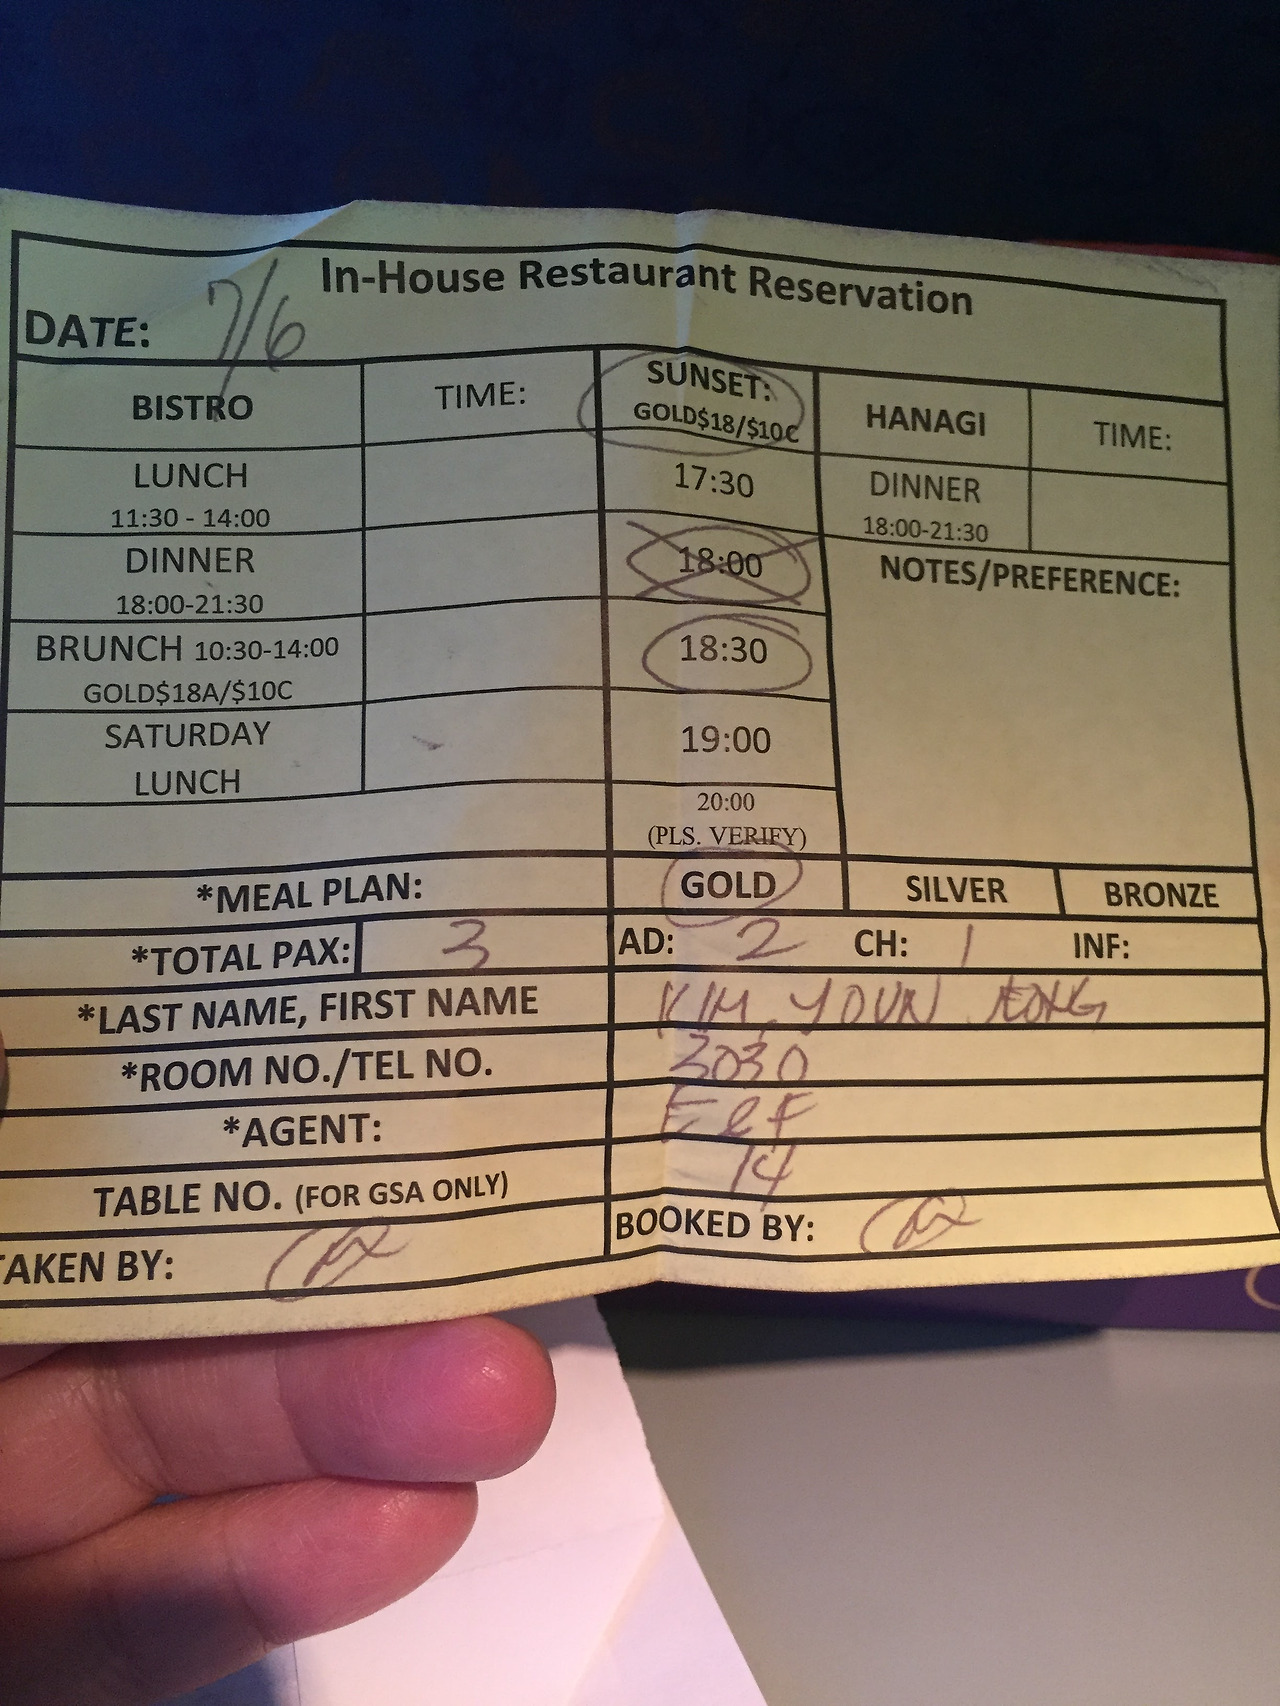 In-House Restaurant Reservation
DATE: 7/6
BISTRO TIME: SUNSET: HANAGI TIME:
GOLD$18/$10C
LUNCH 17:30 DINNER
11:30 - 14:00 18:00-21:30
DINNER 18:00 NOTES/PREFERENCE:
18:00-21:30
BRUNCH 10:30-14:00 18:30
GOLD$18A/$10C
SATURDAY 19:00
LUNCH
20:00
(PLS. VERIFY)
*MEAL PLAN: GOLD SILVER BRONZE
*TOTAL PAX: 3 AD: 2 CH: 1 INF:
*LAST NAME, FIRST NAME KIM, YOUN JEONG
*ROOM NO./TEL NO. 3030
*AGENT:
TABLE NO. (FOR GSA ONLY) 14
TAKEN BY: BOOKED BY: